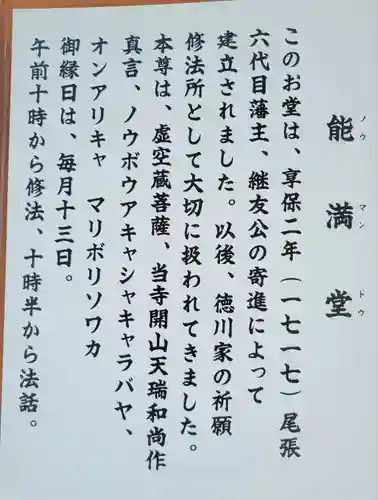 能満堂
ノウマンドウ
このお堂は、享保二年（一七一七）尾張
六代目藩主、継友公の寄進によって
建立されました。以後、徳川家の祈願
修法所として大切に扱われてきました。
本尊は、虚空蔵菩薩、当寺開山天瑞和尚作
真言、ノウボウアキャシャキャラバヤ、
オンアリキャ　マリボリソワカ
御縁日は、毎月十三日。
午前十時から修法、十時半から法話。